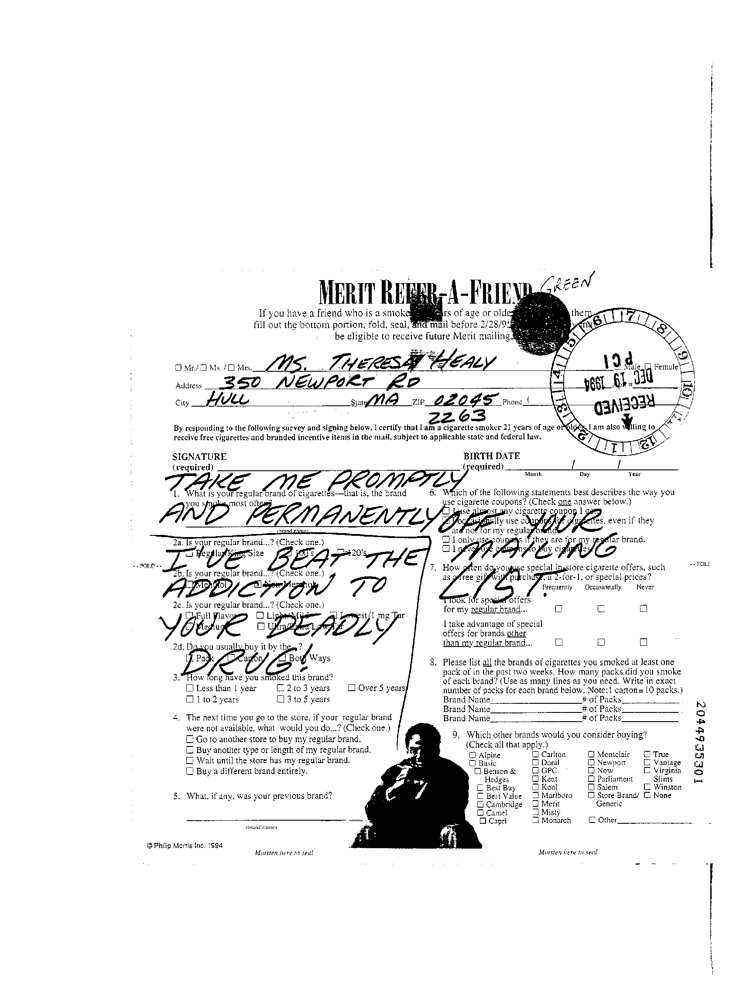 MERIT REFER-A-FRIEND GREEN
If you have a friend who is a smoker years of age or older them
fill out the bottom portion, fold, seal, and mail before 2/28/95
be eligible to receive future Merit mailing
☐ Mr./☐ Ms./☐ Mrs. MS. THERESA HEALY Male ☐ Female
Address 350 NEWPORT RD
City HULL State MA ZIP 02045 Phone (
2263
PCI
DEC 19 1994
RECEIVED
By responding to the following survey and signing below, I certify that I am a cigarette smoker 21 years of age or older. I am also willing to
receive free cigarettes and branded incentive items in the mail, subject to applicable state and federal law.
SIGNATURE
(required)
BIRTH DATE
(required) / /
Month Day Year
TAKE ME PROMPTLY
AND PERMANENTLY OFF YOUR
MAILING
LIST!
I'VE BEAT THE
ADDICTION TO
YOUR DEADLY
DRUG!
1. What is your regular brand of cigarettes—that is, the brand
you smoke most often?
(brand name)
2a. Is your regular brand...? (Check one.)
☐ Regular/King Size ☐ 100's ☐ 120's
2b. Is your regular brand...? (Check one.)
☐ Menthol ☐ Non-Menthol
2c. Is your regular brand...? (Check one.)
☐ Full Flavor ☐ Lights/Mild ☐ Lowest/1 mg Tar
☐ Medium ☐ Ultra/Extra Low Tar
2d. Do you usually buy it by the...?
☐ Pack ☐ Carton ☐ Both Ways
3. How long have you smoked this brand?
☐ Less than 1 year ☐ 2 to 3 years ☐ Over 5 years
☐ 1 to 2 years ☐ 3 to 5 years
4. The next time you go to the store, if your regular brand
were not available, what would you do...? (Check one.)
☐ Go to another store to buy my regular brand.
☐ Buy another type or length of my regular brand.
☐ Wait until the store has my regular brand.
☐ Buy a different brand entirely.
5. What, if any, was your previous brand?
(brand name)
6. Which of the following statements best describes the way you
use cigarette coupons? (Check one answer below.)
☐ I use almost any cigarette coupon I get.
☐ I occasionally use coupons for cigarettes, even if they
are not for my regular brand.
☐ I only use coupons if they are for my regular brand.
☐ I never use coupons to buy cigarettes.
7. How often do you use special in-store cigarette offers, such
as a free gift with purchase, a 2-for-1, or special prices?
Frequently Occasionally Never
I look for special offers
for my regular brand... ☐ ☐ ☐
I take advantage of special
offers for brands other
than my regular brand... ☐ ☐ ☐
8. Please list all the brands of cigarettes you smoked at least one
pack of in the past two weeks. How many packs did you smoke
of each brand? (Use as many lines as you need. Write in exact
number of packs for each brand below. Note: 1 carton = 10 packs.)
Brand Name # of Packs
Brand Name # of Packs
Brand Name # of Packs
9. Which other brands would you consider buying?
(Check all that apply.)
☐ Alpine ☐ Carlton ☐ Montclair ☐ True
☐ Basic ☐ Doral ☐ Newport ☐ Vantage
☐ Benson & ☐ GPC ☐ Now ☐ Virginia
Hedges ☐ Kent ☐ Parliament Slims
☐ Best Buy ☐ Kool ☐ Salem ☐ Winston
☐ Best Value ☐ Marlboro ☐ Store Brand/ ☐ None
☐ Cambridge ☐ Merit Generic
☐ Camel ☐ Misty
☐ Capri ☐ Monarch ☐ Other
-- FOLD --
-- FOLD
© Philip Morris Inc. 1994
Moisten here to seal
Moisten here to seal
2044935301